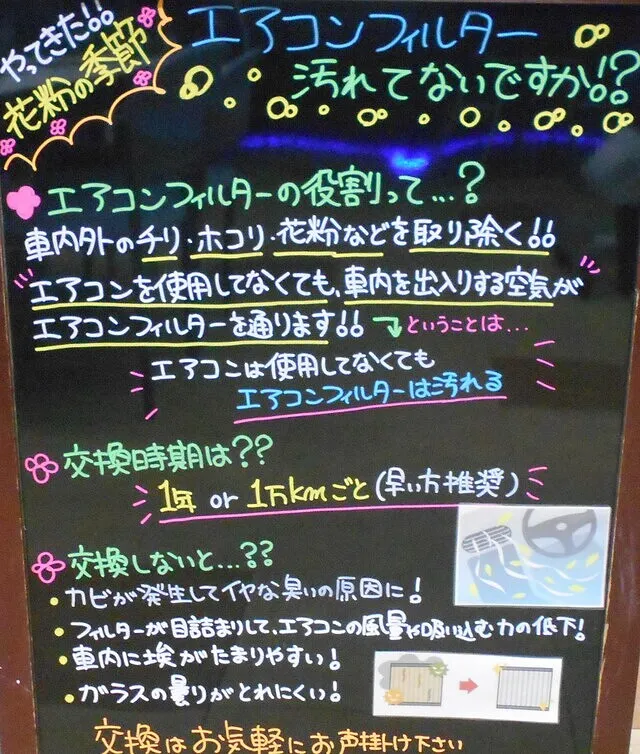 やってきた!!
花粉の季節
エアコンフィルター
汚れてないですか!?
エアコンフィルターの役割って…?
車内外のチリ・ホコリ・花粉などを取り除く!!
エアコンを使用してなくても、車内を出入りする空気が
エアコンフィルターを通ります!! ということは…
エアコンは使用してなくても
エアコンフィルターは汚れる
交換時期は??
1年 or 1万kmごと(早い方推奨)
交換しないと…??
・カビが発生してイヤな臭いの原因に!
・フィルターが目詰まりして、エアコンの風量や吸い込む力の低下!
・車内に埃がたまりやすい!
・ガラスの曇りがとれにくい!
交換はお気軽にお声掛け下さい